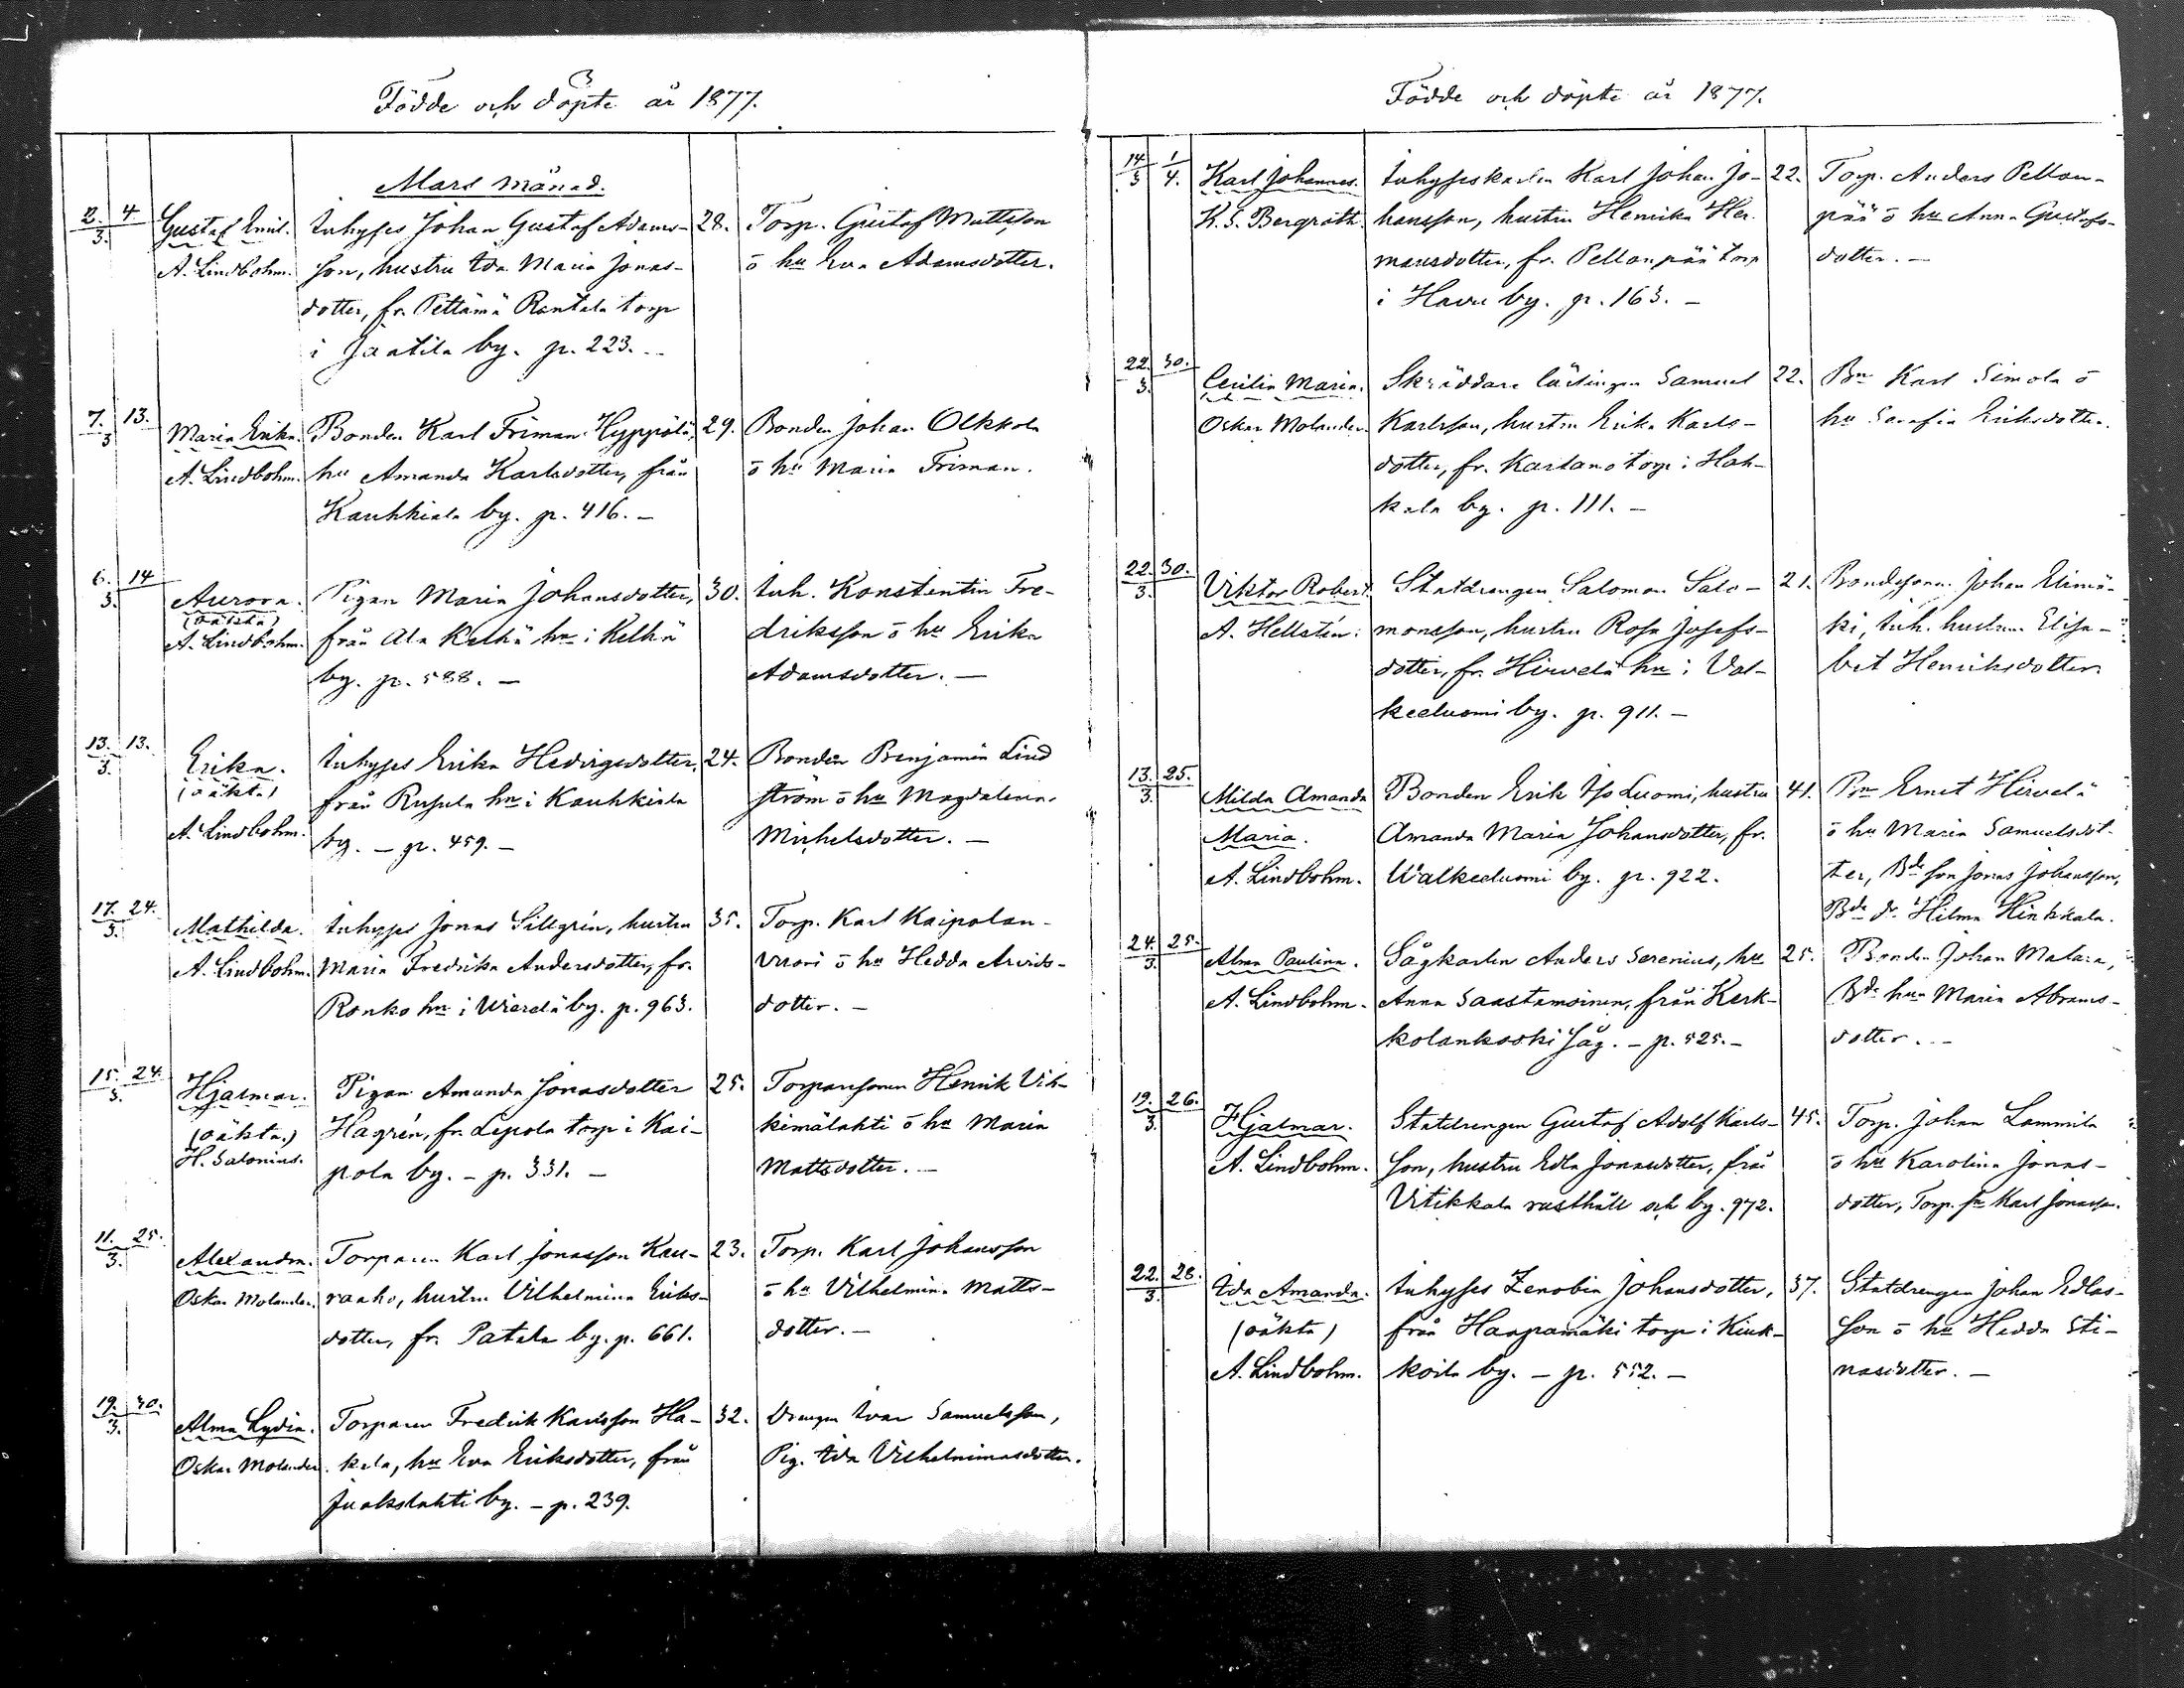 Födde och döpte år 1877.
Mars månad.
2. 4
3.
Gustaf Emil.
A. Lindbohm.
Inhyses Johan Gustaf Adams-
son, hustru Ida Maria Jonas-
dotter, fr. Pettämä Rantala torp
i Jaatila by. p. 223.
28.
Torp. Gustaf Mattsson
o hu Eva Adamsdotter.
7. 13.
3
Maria Erika.
A. Lindbohm.
Bonden Karl Friman Hyppölä,
hu Amanda Karlsdotter, från
Kauhkiala by. p. 416. –
29.
Bonden Johan Olkkola
o hu Maria Friman.
6. 14
3.
Aurora.
(oäkta)
A. Lindbohm.
Pigan Maria Johansdotter,
från Ala Kelhä hn i Kelhä
by. p. 588. –
30.
Inh. Konstantin Fre-
driksson o hu Erika
Adamsdotter. –
13. 13.
3.
Erika.
(oäkta)
A. Lindbohm.
Inhyses Erika Hedvigsdotter,
från Rusula hn i Kauhkiala
by. – p. 459. –
24.
Bonden Benjamin Lind
ström o hu Magdalena
Michelsdotter. –
17. 24.
3.
Mathilda.
A. Lindbohm.
Inhyses Jonas Sillgrén, hustru
Maria Fredrika Andersdotter, fr.
Ronko hn i Wierelä by. p. 963.
35.
Torp. Karl Kaipolan-
vuori o hu Hedda Arvids-
dotter. –
15. 24.
3.
Hjalmar.
(oäkta.)
H. Salonius.
Pigan Amanda Jonasdotter
Hagrén, fr. Lepola torp i Kai-
pola by. – p. 331. –
25.
Torparesonen Henrik Vih-
kimälahti o hu Maria
Mattsdotter. –
11. 25.
3.
Alexandra.
Oskar Molander.
Torparen Karl Jonasson Kau-
raaho, hustru Vilhelmina Eriks-
dotter, fr. Patala by. p. 661.
23.
Torp. Karl Johansson
o hu Vilhelmina Matts-
dotter. –
19. 30.
3.
Alma Lydia.
Oskar Molander.
Torparen Fredrik Karlsson Ha-
kala, hu Eva Eriksdotter, från
Juokslahti by. – p. 239.
32.
Drengen Ivar Samuelsson,
Pig. Ida Vilhelminasdotter.
Födde och döpte år 1877.
14 1
3 4.
Karl Johannes.
K. G. Bergroth.
Inhyseskarlen Karl Johan Jo-
hansson, hustru Henrika Her-
mansdotter, fr. Pellonpää torp
i Havu by. p. 163. –
22.
Torp. Anders Pellon-
pää o hu Anna Gustafs-
dotter. –
22. 30.
3.
Cecilia Maria.
Oskar Molander.
Skräddare lärlingen Samuel
Karlsson, hustru Erika Karls-
dotter, fr. Kartano torp i Hah-
kala by. p. 111. –
22.
Bn Karl Simola o
hu Serafia Eriksdotter.
22. 30.
3.
Viktor Robert.
A. Hellstén.
Statdrengen Salomon Salo-
monsson, hustru Rosa Josefs-
dotter, fr. Hirvelä hn i Val-
keeluomi by. p. 911. –
21.
Bondesonen Johan Elimä-
ki, Inh. hustrun Elisa-
bet Henriksdotter.
13. 25.
3.
Milda Amanda
Maria.
A. Lindbohm.
Bonden Erik Iso Luomi, hustru
Amanda Maria Johansdotter, fr.
Walkeeluomi by. p. 922.
41.
Bn Ernst Hirvelä
o hu Maria Samuelsdot-
ter, Bde son Jonas Johansson,
Bde dr. Hilma Hinkkala.
24. 25.
3.
Alma Paulina.
A. Lindbohm.
Sågkarlen Anders Serenius, hu
Anna Saastamoinen, från Kerk-
kolankoski såg. – p. 525. –
25.
Bonden Johan Matara,
Bde hun Maria Abrams-
dotter. –
19. 26.
3.
Hjalmar.
A. Lindbohm.
Statdrengen Gustaf Adolf Karls-
son, hustru Edla Jonasdotter, från
Vitikkala rusthåll och by. 972.
45.
Torp. Johan Lammila
o hu Karolina Jonas-
dotter, Torp. sn Karl Jonasson.
22. 28.
3.
Ida Amanda.
(oäkta)
A. Lindbohm.
Inhyses Zenobia Johansdotter,
från Haapamäki torp i Kiuk-
koila by. – p. 552. –
37.
Statdrengen Johan Edlas-
son o hu Hedda Sti-
nasdotter. –